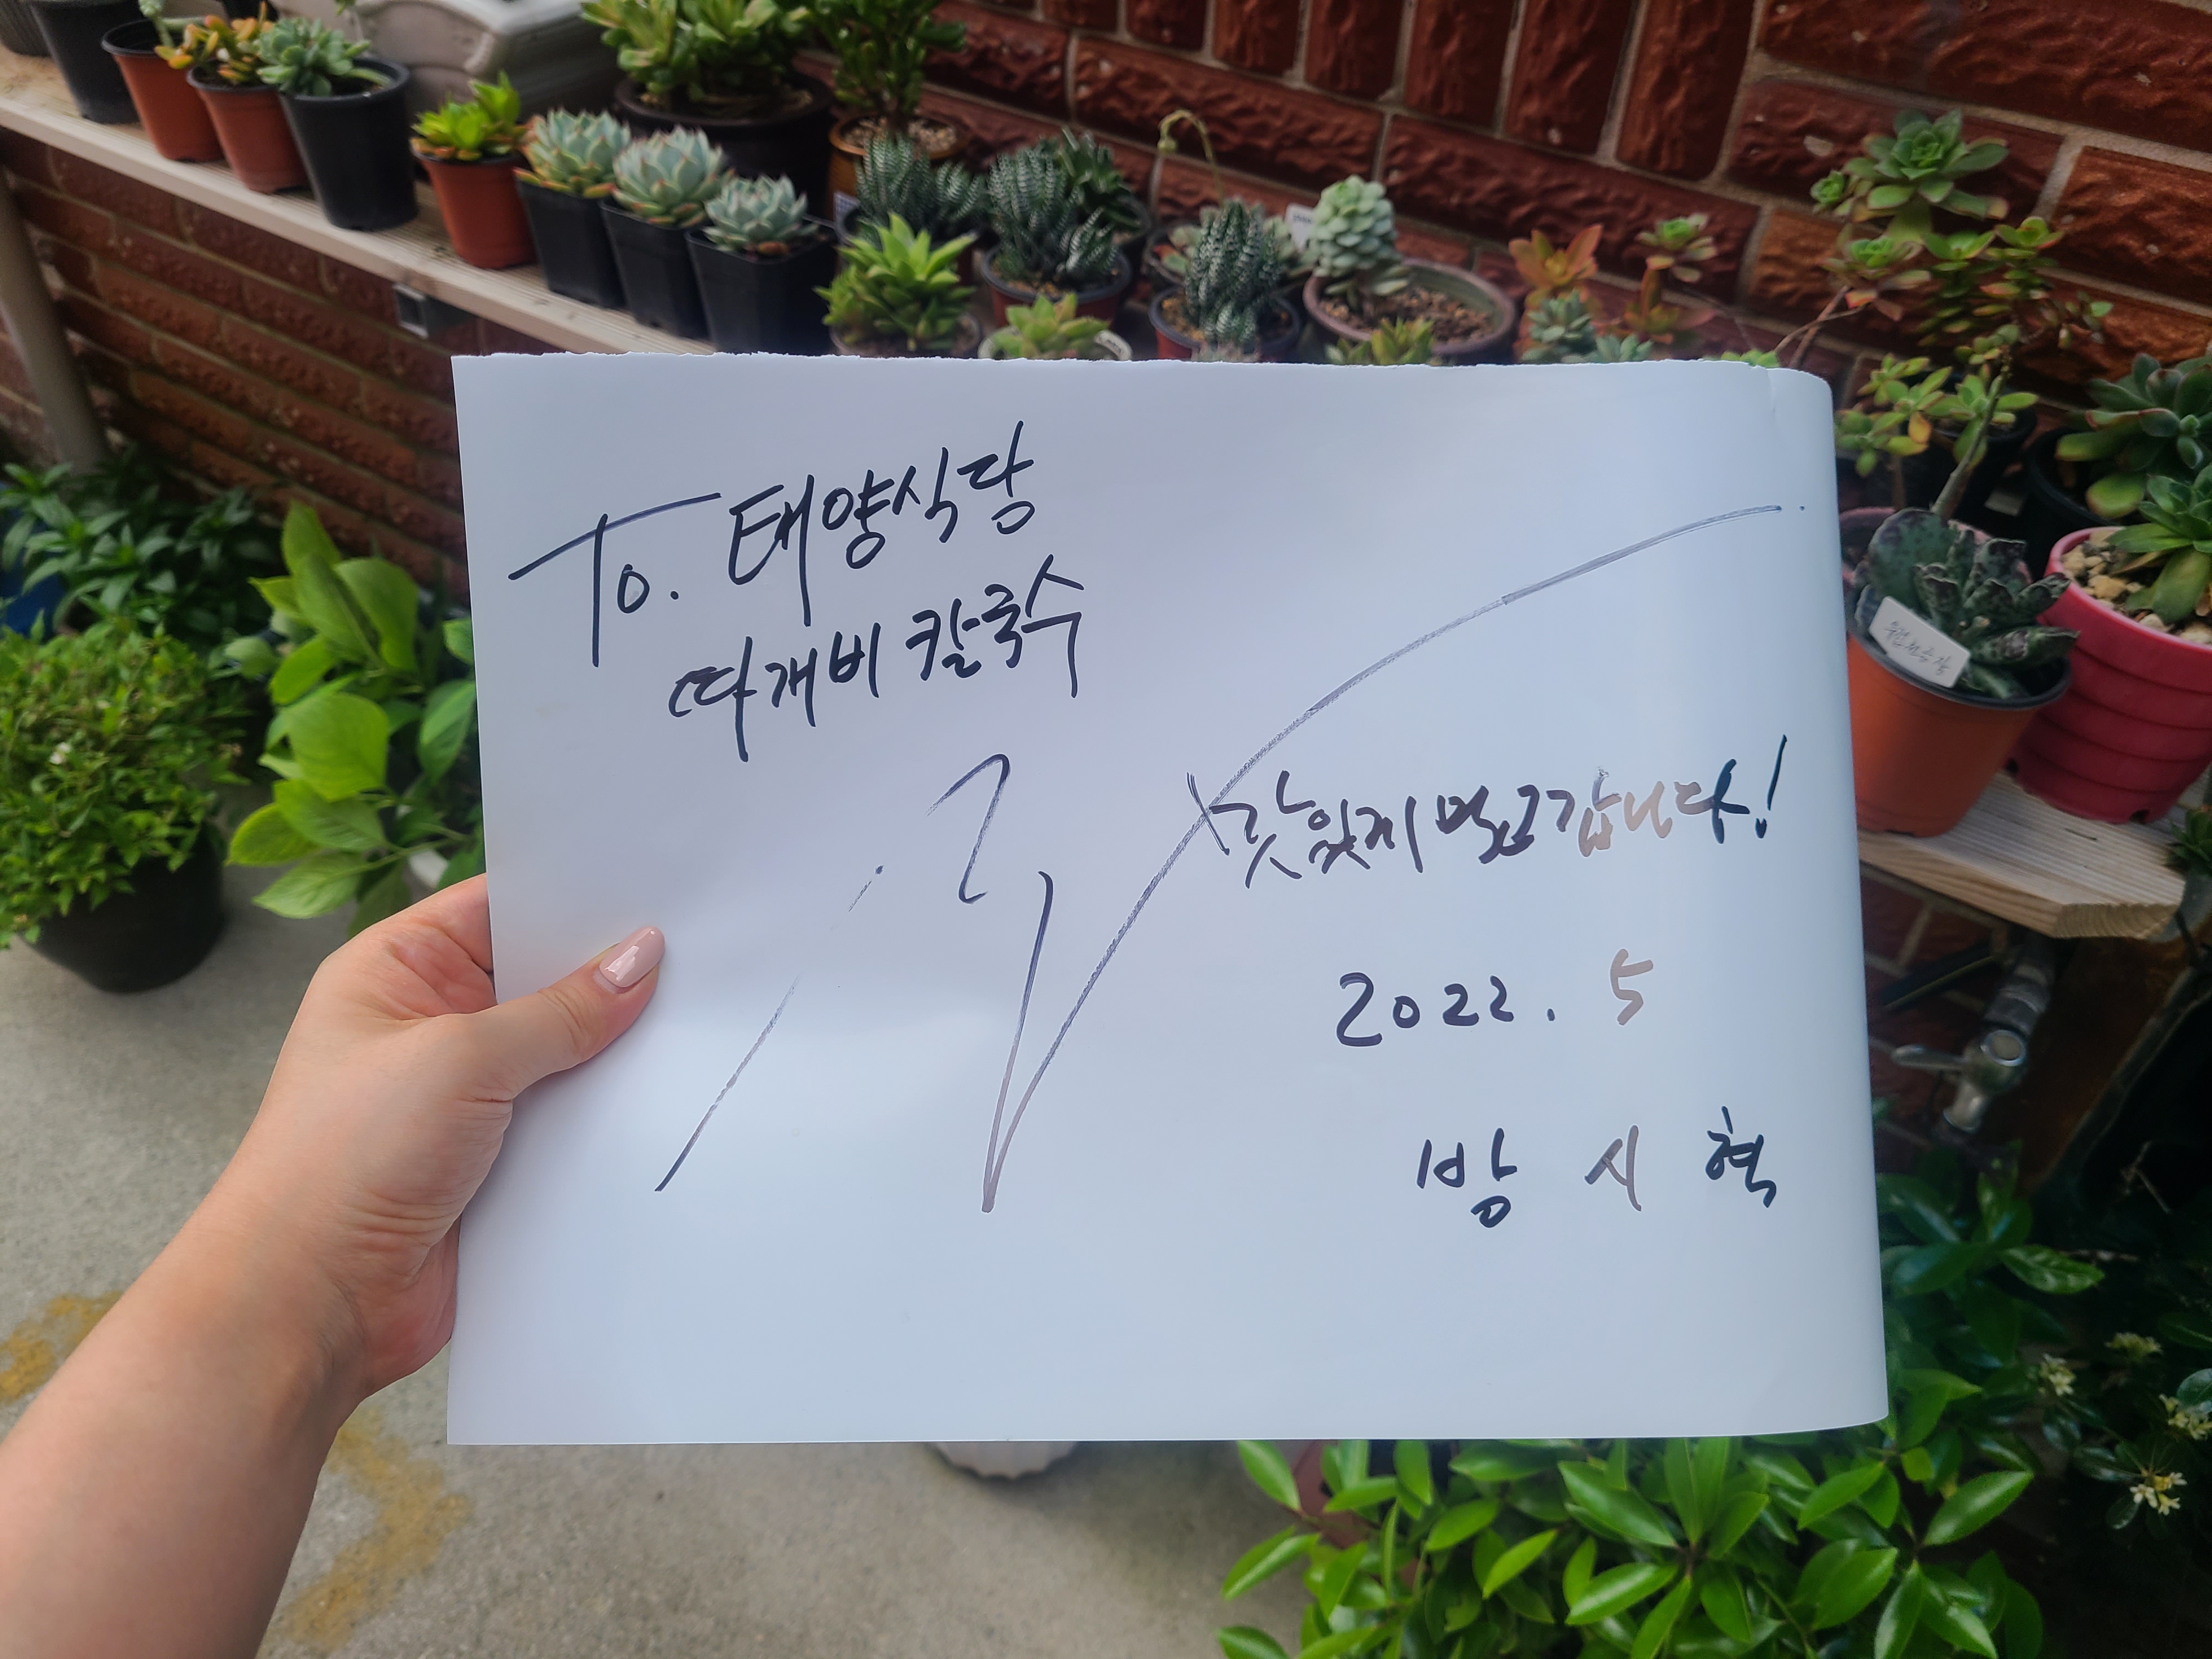 To. 태양식당
따개비 칼국수
맛있게 먹고 갑니다!
2022. 5
방 시 혁